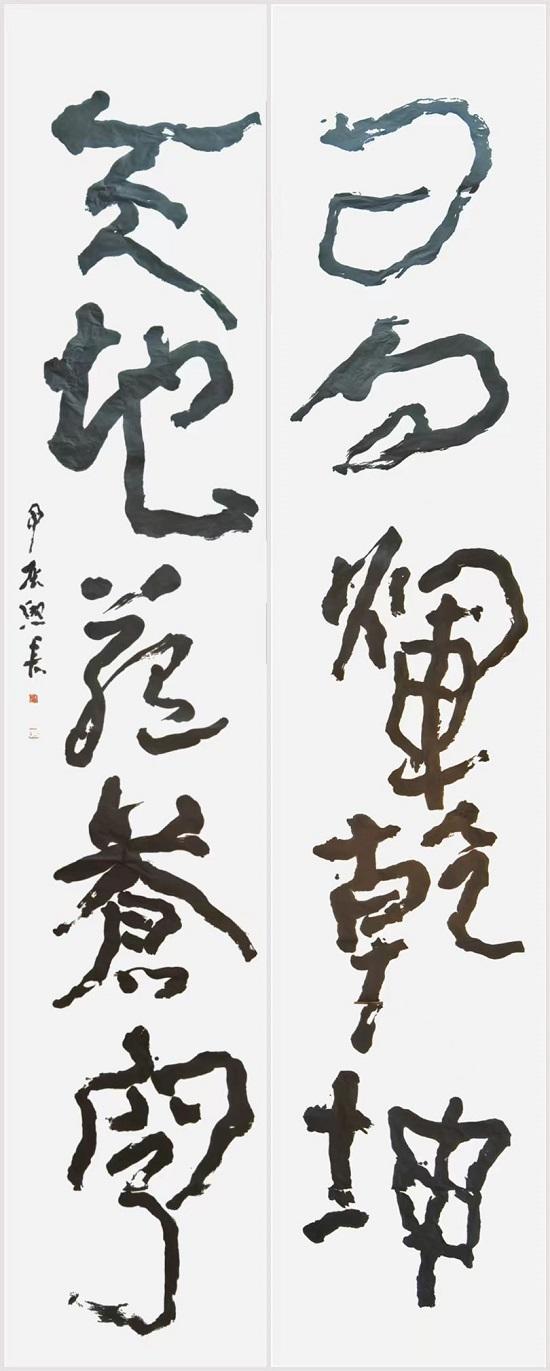 日月輝乾坤
天地蒼穹
甲辰長